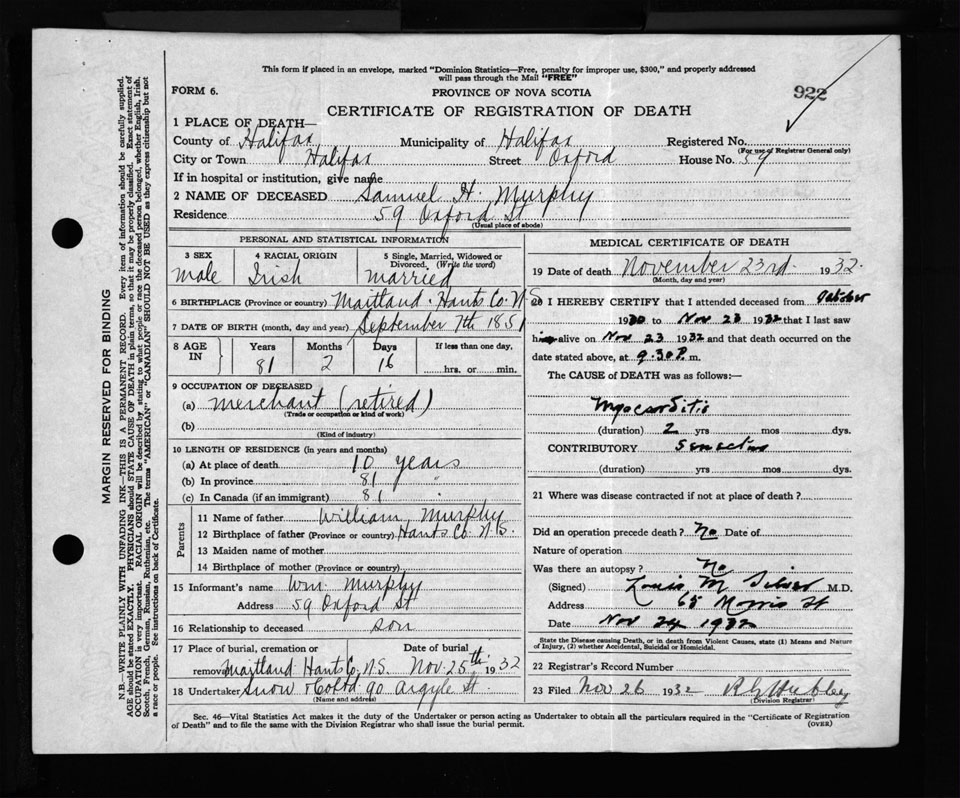 This form if placed in an envelope, marked "Dominion Statistics—Free, penalty for improper use, $300," and properly addressed
will pass through the Mail "FREE"
FORM 6.
PROVINCE OF NOVA SCOTIA
922
CERTIFICATE OF REGISTRATION OF DEATH
1 PLACE OF DEATH—
County of Halifax Municipality of Halifax Registered No.
(For use of Registrar General only)
City or Town Halifax Street Oxford House No. 59
If in hospital or institution, give name
2 NAME OF DECEASED Samuel H. Murphy
Residence 59 Oxford St
(Usual place of abode)
PERSONAL AND STATISTICAL INFORMATION
3 SEX 4 RACIAL ORIGIN 5 Single, Married, Widowed or
Divorced. (Write the word)
male Irish married
6 BIRTHPLACE (Province or country) Maitland Hants Co. N.S
7 DATE OF BIRTH (month, day and year) September 7th 1851
8 AGE IN Years Months Days If less than one day,
81 2 16 hrs. or min.
9 OCCUPATION OF DECEASED
(a) merchant (retired)
(Trade or occupation or kind of work)
(b)
(Kind of industry)
10 LENGTH OF RESIDENCE (in years and months)
(a) At place of death 10 years
(b) In province 81 "
(c) In Canada (if an immigrant) 81 "
Parents
11 Name of father William Murphy
12 Birthplace of father (Province or country) Hants Co. N.S.
13 Maiden name of mother
14 Birthplace of mother (Province or country)
15 Informant's name Wm. Murphy
Address 59 Oxford St
16 Relationship to deceased son
17 Place of burial, cremation or Date of burial
removal Maitland Hants Co. N.S. Nov. 25th 1932
18 Undertaker Snow & Co Ltd 90 Argyle St.
(Name and address)
MEDICAL CERTIFICATE OF DEATH
19 Date of death November 23rd 1932
(Month, day and year)
20 I HEREBY CERTIFY that I attended deceased from October
1930 to Nov 23 1932 that I last saw
him alive on Nov 23 1932 and that death occurred on the
date stated above, at 9.30 P. m.
The CAUSE of DEATH was as follows:—
Myocarditis
(duration) 2 yrs mos dys.
CONTRIBUTORY Senectus
(duration) yrs mos dys.
21 Where was disease contracted if not at place of death?
Did an operation precede death? No Date of
Nature of operation
Was there an autopsy? No
(Signed) Louis M Silver M.D.
Address 65 Morris St
Date Nov 24 1932
State the Disease causing Death, or in death from Violent Causes, state (1) Means and Nature
of Injury, (2) whether Accidental, Suicidal or Homicidal.
22 Registrar's Record Number
23 Filed Nov 26 1932
(Division Registrar)
Sec. 46—Vital Statistics Act makes it the duty of the Undertaker or person acting as Undertaker to obtain all the particulars required in the "Certificate of Registration
of Death" and to file the same with the Division Registrar who shall issue the burial permit.
(OVER)
MARGIN RESERVED FOR BINDING
N.B.—WRITE PLAINLY WITH UNFADING INK—THIS IS A PERMANENT RECORD. Every item of information should be carefully supplied.
AGE should be stated EXACTLY. PHYSICIANS should STATE CAUSE OF DEATH in plain terms, so that it may be properly classified. Exact statement of
OCCUPATION is very important. RACIAL ORIGIN will be described by stating to what people or race the deceased person belonged, whether English, Irish,
Scotch, French, German, Russian, Ruthenian, etc. The terms "AMERICAN" or "CANADIAN" SHOULD NOT BE USED as they express citizenship but not
a race or people. See instructions on back of Certificate.